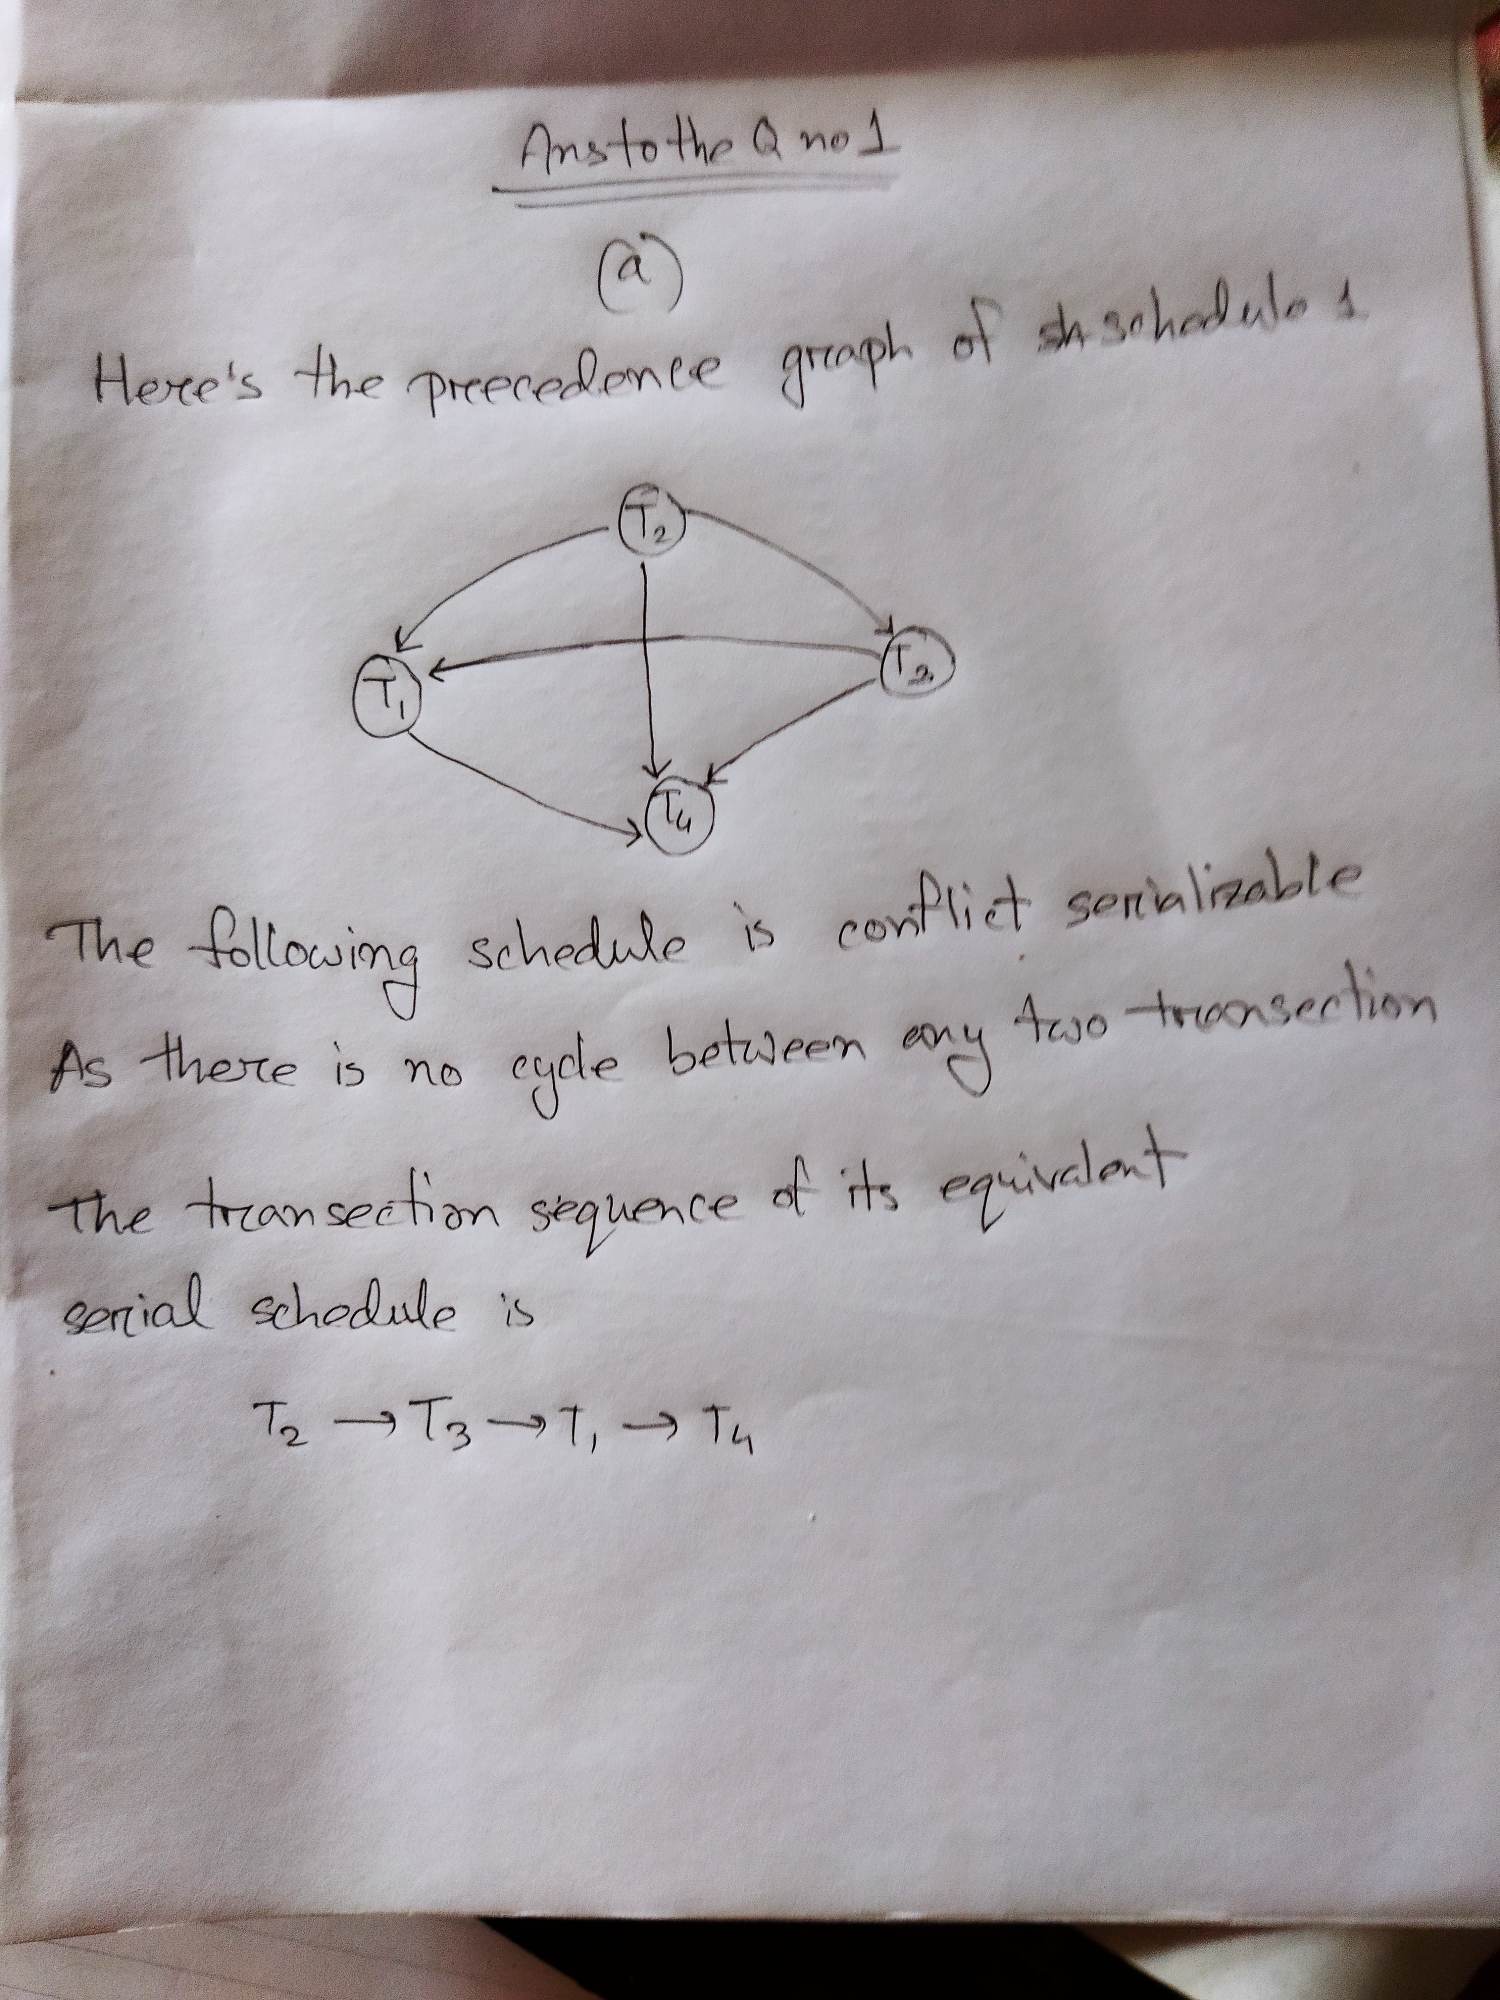 Ans to the Q no 1
(a)
Here's the precedence graph of sh schedule 1
T2
T1
T3
T4
The following schedule is conflict serializable
As there is no cycle between any two transection
The transection sequence of its equivalent
serial schedule is
T2 → T3 → T1 → T4